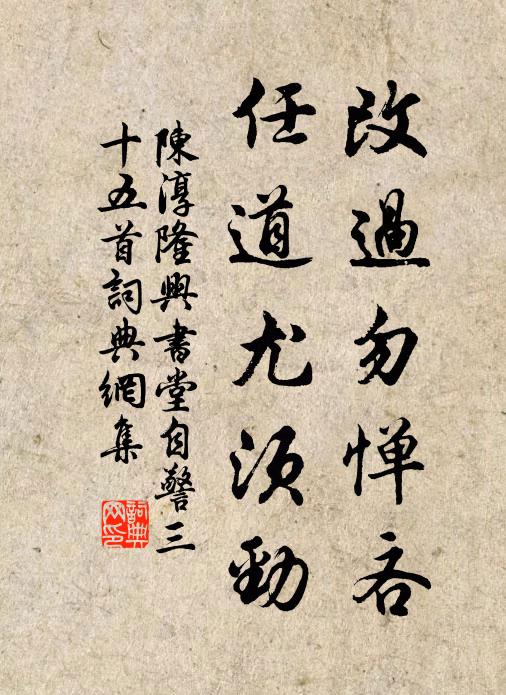 改過勿惮吝
任道尤须勁
陳淳隆興書堂自警三
十五首詞典網集
詞典
网印